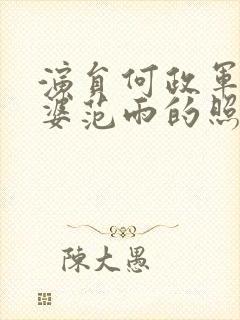 演員何政軍
婆范雨的照
陳大愚